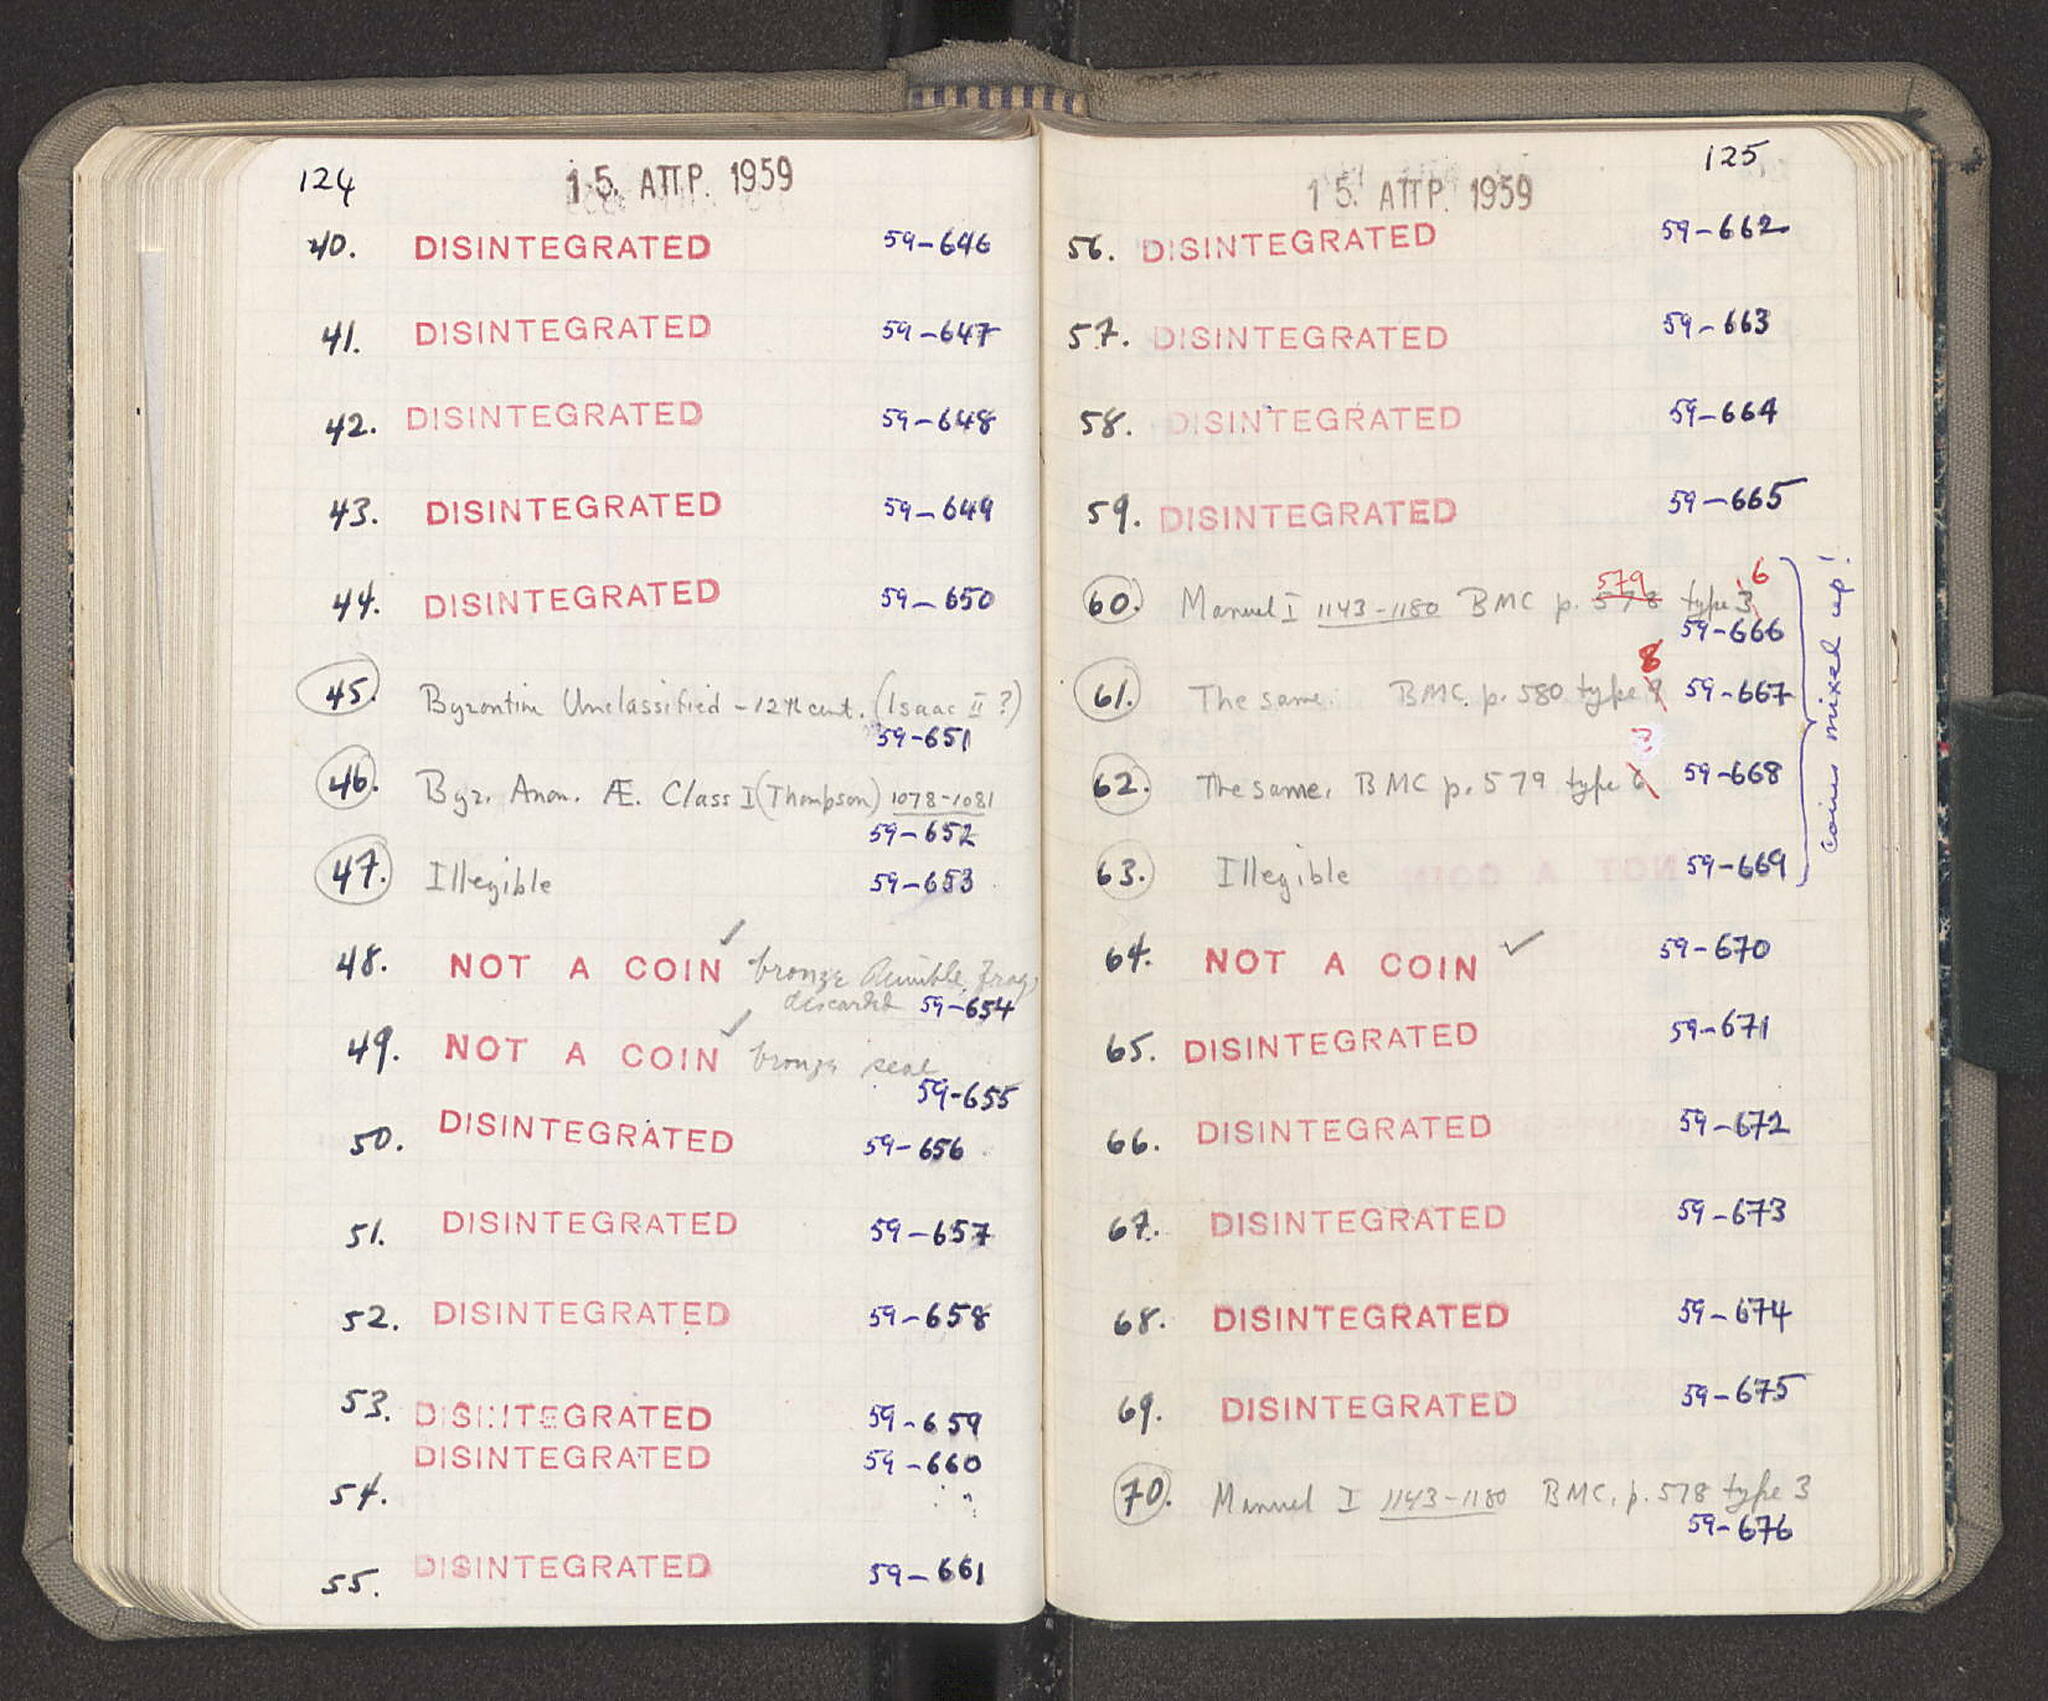 124
15. ΑΠΡ. 1959
40. DISINTEGRATED 59-646
41. DISINTEGRATED 59-647
42. DISINTEGRATED 59-648
43. DISINTEGRATED 59-649
44. DISINTEGRATED 59-650
45. Byzantine Unclassified - 12th cent. (Isaac II ?)
59-651
46. Byz. Anon. Æ. Class I (Thompson) 1078-1081
59-652
47. Illegible 59-653
48. NOT A COIN ✓ bronze thimble frag.
discarded 59-654
49. NOT A COIN ✓ bronze seal
59-655
50. DISINTEGRATED 59-656
51. DISINTEGRATED 59-657
52. DISINTEGRATED 59-658
53. DISINTEGRATED 59-659
DISINTEGRATED 59-660
54.
55. DISINTEGRATED 59-661
125
15. ΑΠΡ. 1959
56. DISINTEGRATED 59-662
57. DISINTEGRATED 59-663
58. DISINTEGRATED 59-664
59. DISINTEGRATED 59-665
579 6
60. Manuel I 1143-1180 BMC p. 578 type 3
59-666
8
61. The same. BMC. p. 580 type 9 59-667
3
62. The same. BMC p. 579 type 6 59-668
63. Illegible 59-669
coins mixed up!
64. NOT A COIN ✓ 59-670
65. DISINTEGRATED 59-671
66. DISINTEGRATED 59-672
67. DISINTEGRATED 59-673
68. DISINTEGRATED 59-674
69. DISINTEGRATED 59-675
70. Manuel I 1143-1180 BMC. p. 578 type 3
59-676